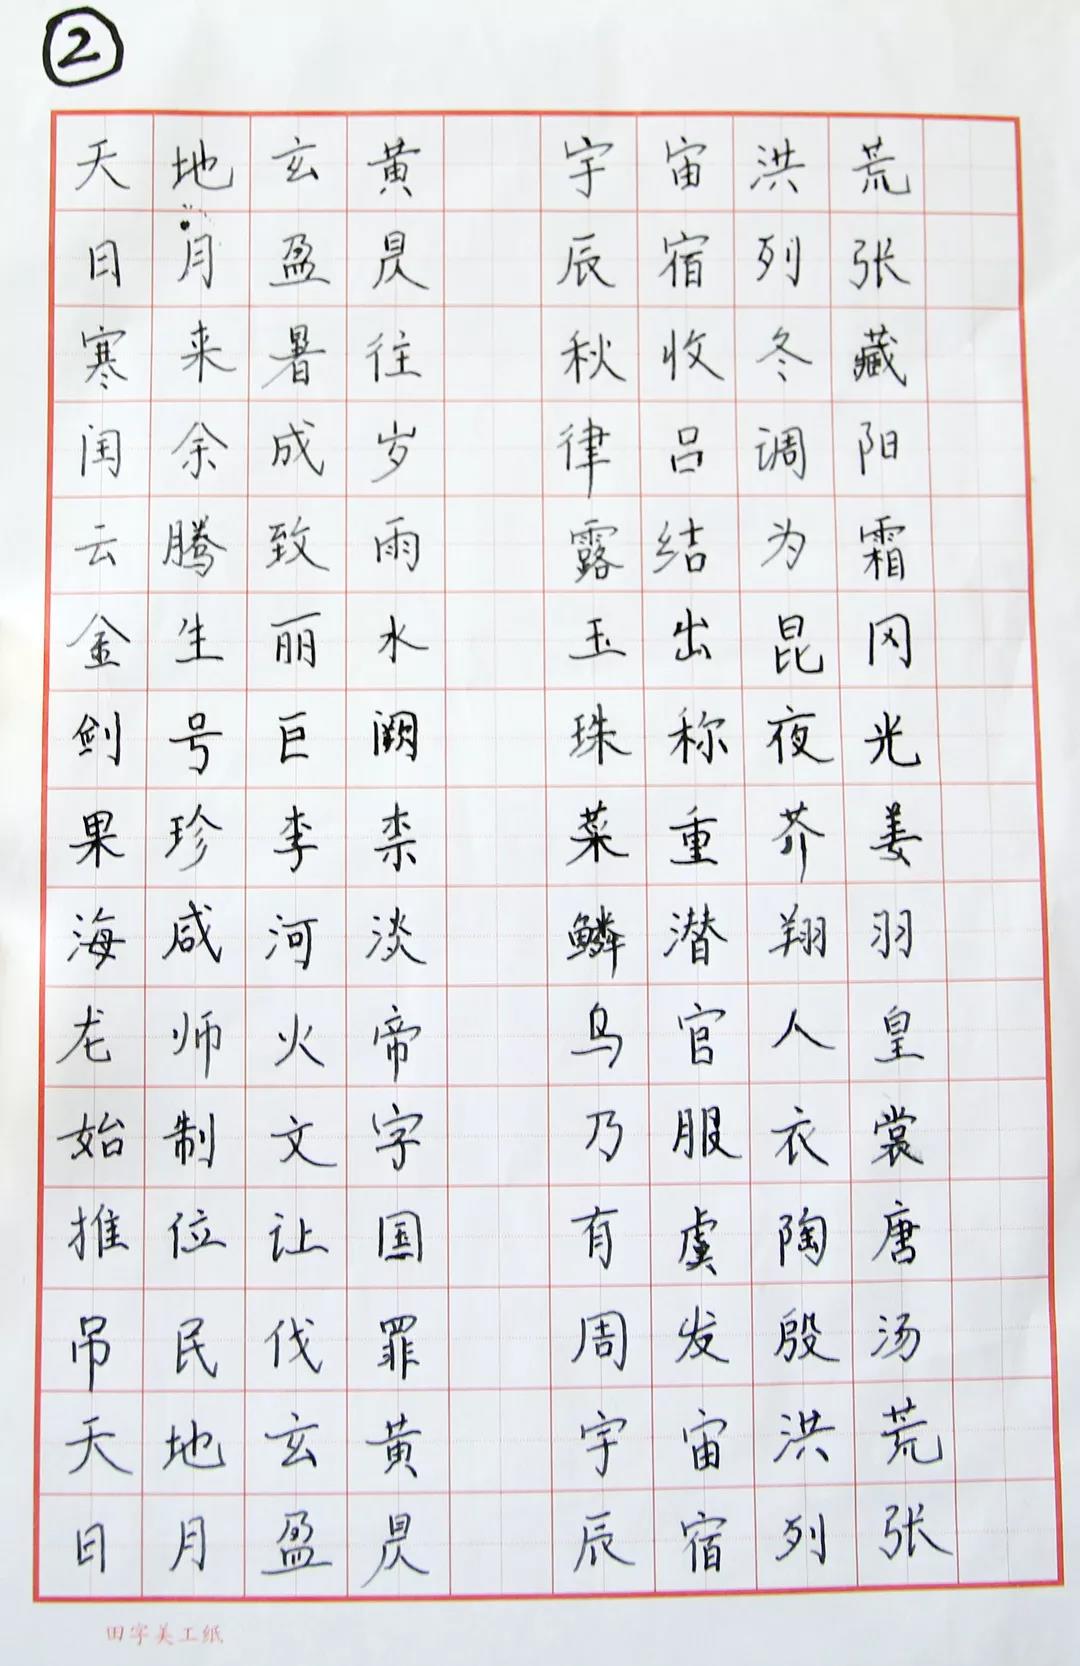 ②
天地玄黄 宇宙洪荒
日月盈昃 辰宿列张
寒来暑往 秋收冬藏
闰余成岁 律吕调阳
云腾致雨 露结为霜
金生丽水 玉出昆冈
剑号巨阙 珠称夜光
果珍李柰 菜重芥姜
海咸河淡 鳞潜翔羽
龙师火帝 鸟官人皇
始制文字 乃服衣裳
推位让国 有虞陶唐
吊民伐罪 周发殷汤
天地玄黄 宇宙洪荒
日月盈昃 辰宿列张
田字美工纸